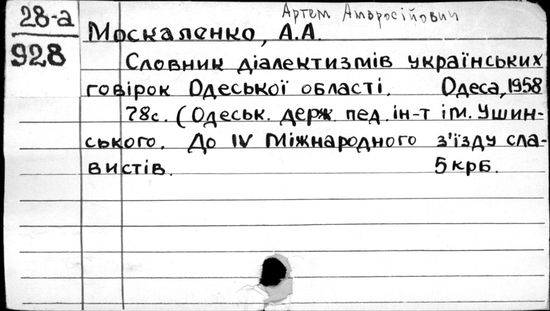 28-а
928
Артем Амвросійович
Москаленко, А.А.
Словник діалектизмів українських
говірок Одеської області. Одеса, 1958
78с. (Одеськ. держ. пед. ін-т ім. Ушин-
ського. До IV Міжнародного з'їзду сла-
вистів. 5 крб.